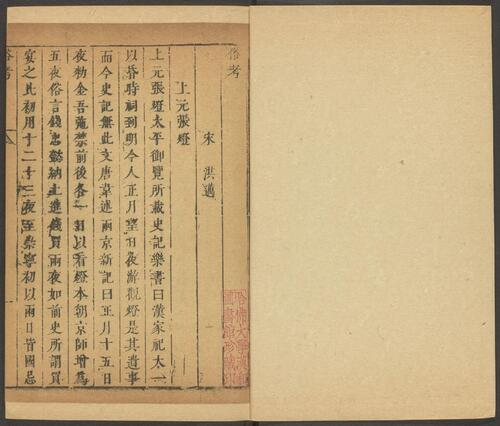 俗考
宋 洪邁
上元張燈
上元張燈太平御覽所載史記樂書曰漢家祀太一
以昏時祠到明今人正月望日夜游觀燈是其遺事
而今史記無此文唐韋述兩京新記曰正月十五日
夜勅金吾弛禁前後各一日以看燈本朝京師增爲
五夜俗言錢忠懿納土進錢買兩夜如前史所謂買
宴之比初用十二十三夜至崇寧初以兩日皆國忌
俗考
哈佛大學
圖書館珍藏印